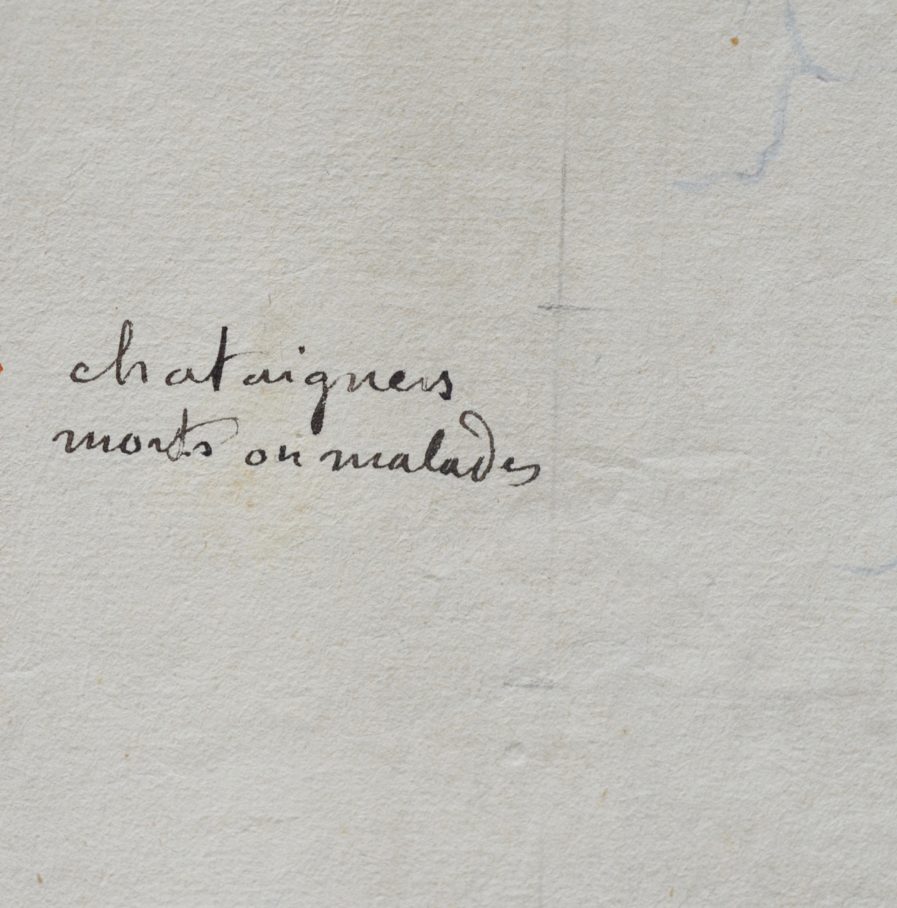 chataigners
morts ou malades